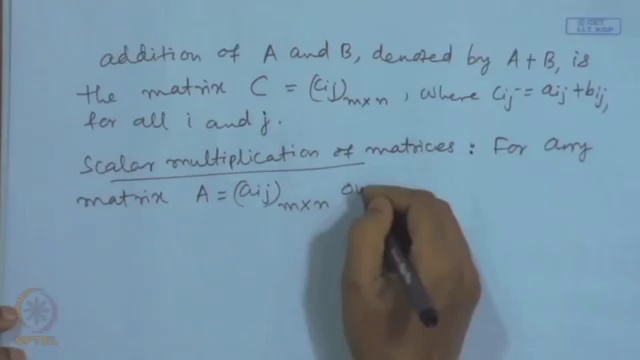 © CET
I.I.T. KGP
addition of A and B, denoted by A + B, is
the matrix C = (cij)m×n, where cij = aij + bij,
for all i and j.
Scalar multiplication of matrices: For any
matrix A = (aij)m×n
NPTEL